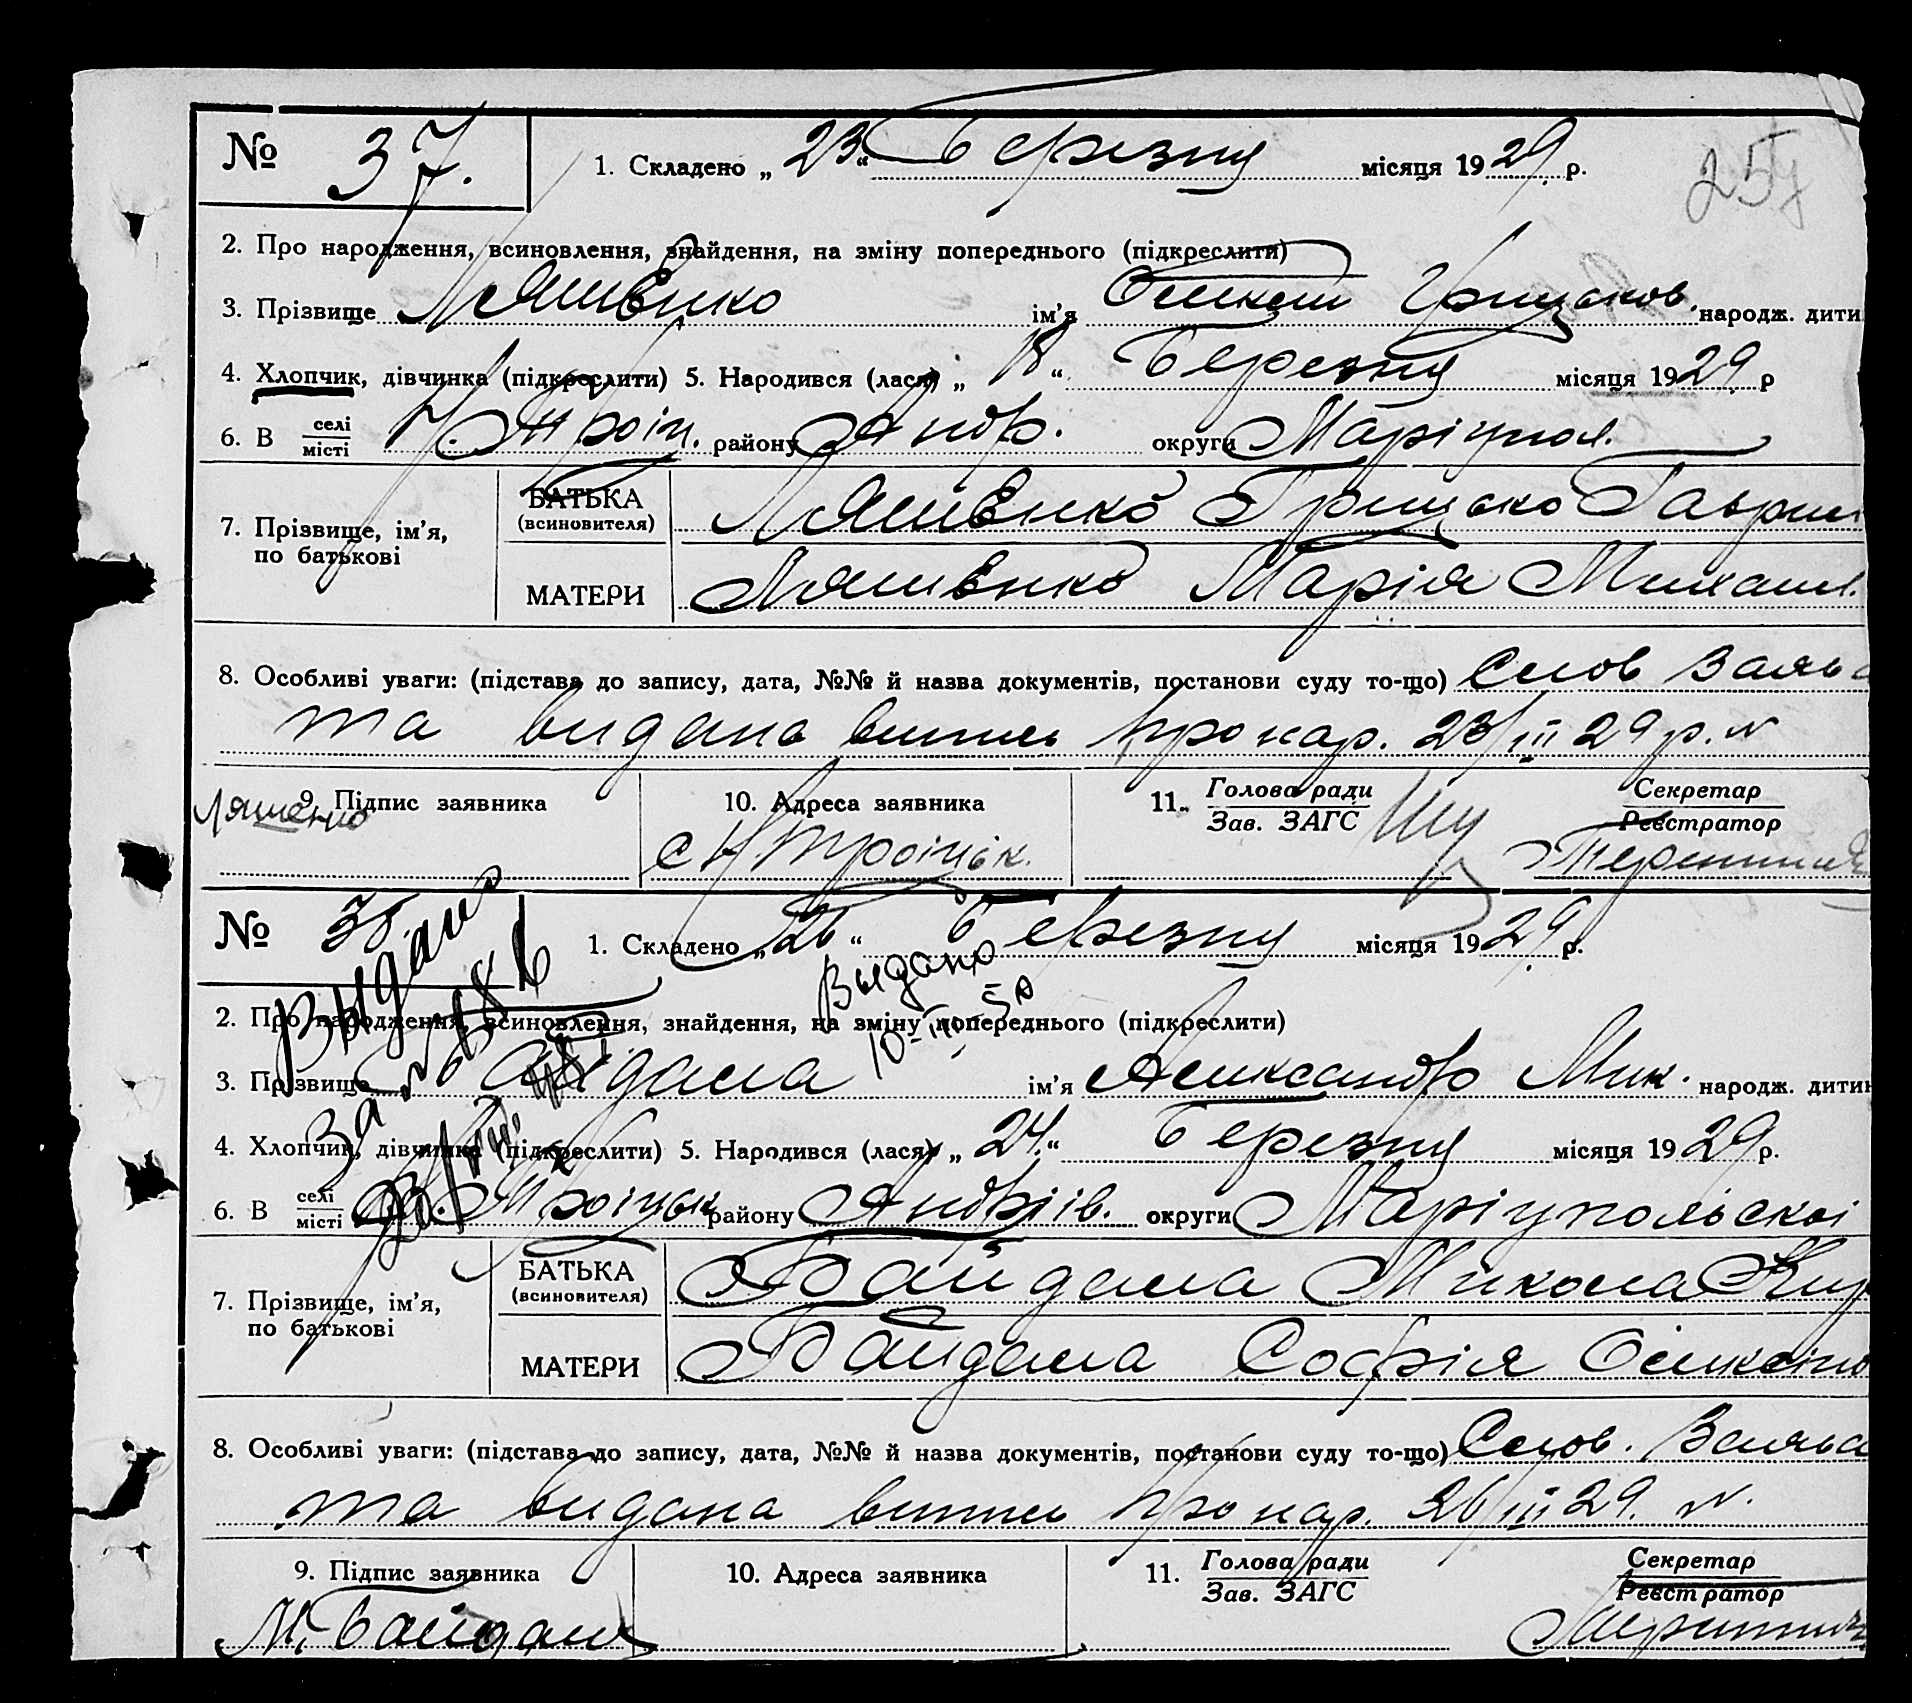 № 37. 1. Складено „ 23 “ Березня місяця 1929 р.
257
2. Про народження, всиновлення, знайдення, на зміну попереднього (підкреслити)
3. Прізвище Ляшенко ім'я Олексій Грицьков. народж. дити
4. Хлопчик, дівчинка (підкреслити) 5. Народився (лася) „ 18 “ Березня місяця 1929 р
6. В селі місті Н. Троіц. району Андр. округи Маріупол.
7. Прізвище, ім'я, по батькові
БАТЬКА (всиновителя) Ляшенко Грицько Гаврил
МАТЕРИ Ляшенко Марія Михаил.
8. Особливі уваги: (підстава до запису, дата, №№ й назва документів, постанови суду то-що) Слов Заява
та видана випись про нар. 23/III 29 р. №
9. Підпис заявника 10. Адреса заявника 11. Голова ради Зав. ЗАГС Секретар Реєстратор
Ляшенко с Н Троіцьк.
№ 38. 1. Складено „ 26 “ Березня місяця 1929 р.
Выдано
За №
Выдано
10-III-50
2. Про народження, всиновлення, знайдення, на зміну попереднього (підкреслити)
3. Прізвище Байдала ім'я Александр Мик. народж. дитин
4. Хлопчик, дівчинка (підкреслити) 5. Народився (лася) „ 24. “ Березня місяця 1929 р.
6. В селі місті Н. Троіцьк району Андріів. округи Маріупольскоі
7. Прізвище, ім'я, по батькові
БАТЬКА (всиновителя) Байдала Микола Кир
МАТЕРИ Байдала Софія
8. Особливі уваги: (підстава до запису, дата, №№ й назва документів, постанови суду то-що) Слов. Заява
та видана випись про нар. 26/III 29. №.
9. Підпис заявника 10. Адреса заявника 11. Голова ради Зав. ЗАГС Секретар Реєстратор
М. Байдала